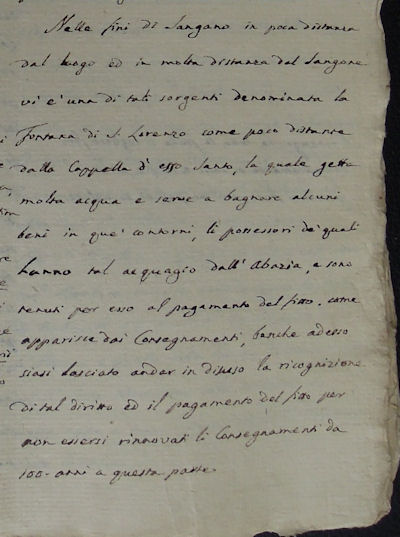 Nelle fini di Sangano in poca distanza
dal luogo ed in molta distanza dal Sangone
vi e' una di tali sorgenti denominata la
Fontana di S. Lorenzo come poco distante
dalla Cappella d' esso Santo, la quale getta
molta acqua e serve a bagnare alcuni
beni in que' contorni, li possessori de' quali
hanno tal acquagio dall' Abazia, e sono
tenuti per esso al pagamento del fitto, come
apparisce dai Consegnamenti, benche adesso
siasi lasciato andar in disuso la ricognizione
di tal diritto ed il pagamento del fitto per
non essersi rinnovati li Consegnamenti da
100. anni a questa parte.